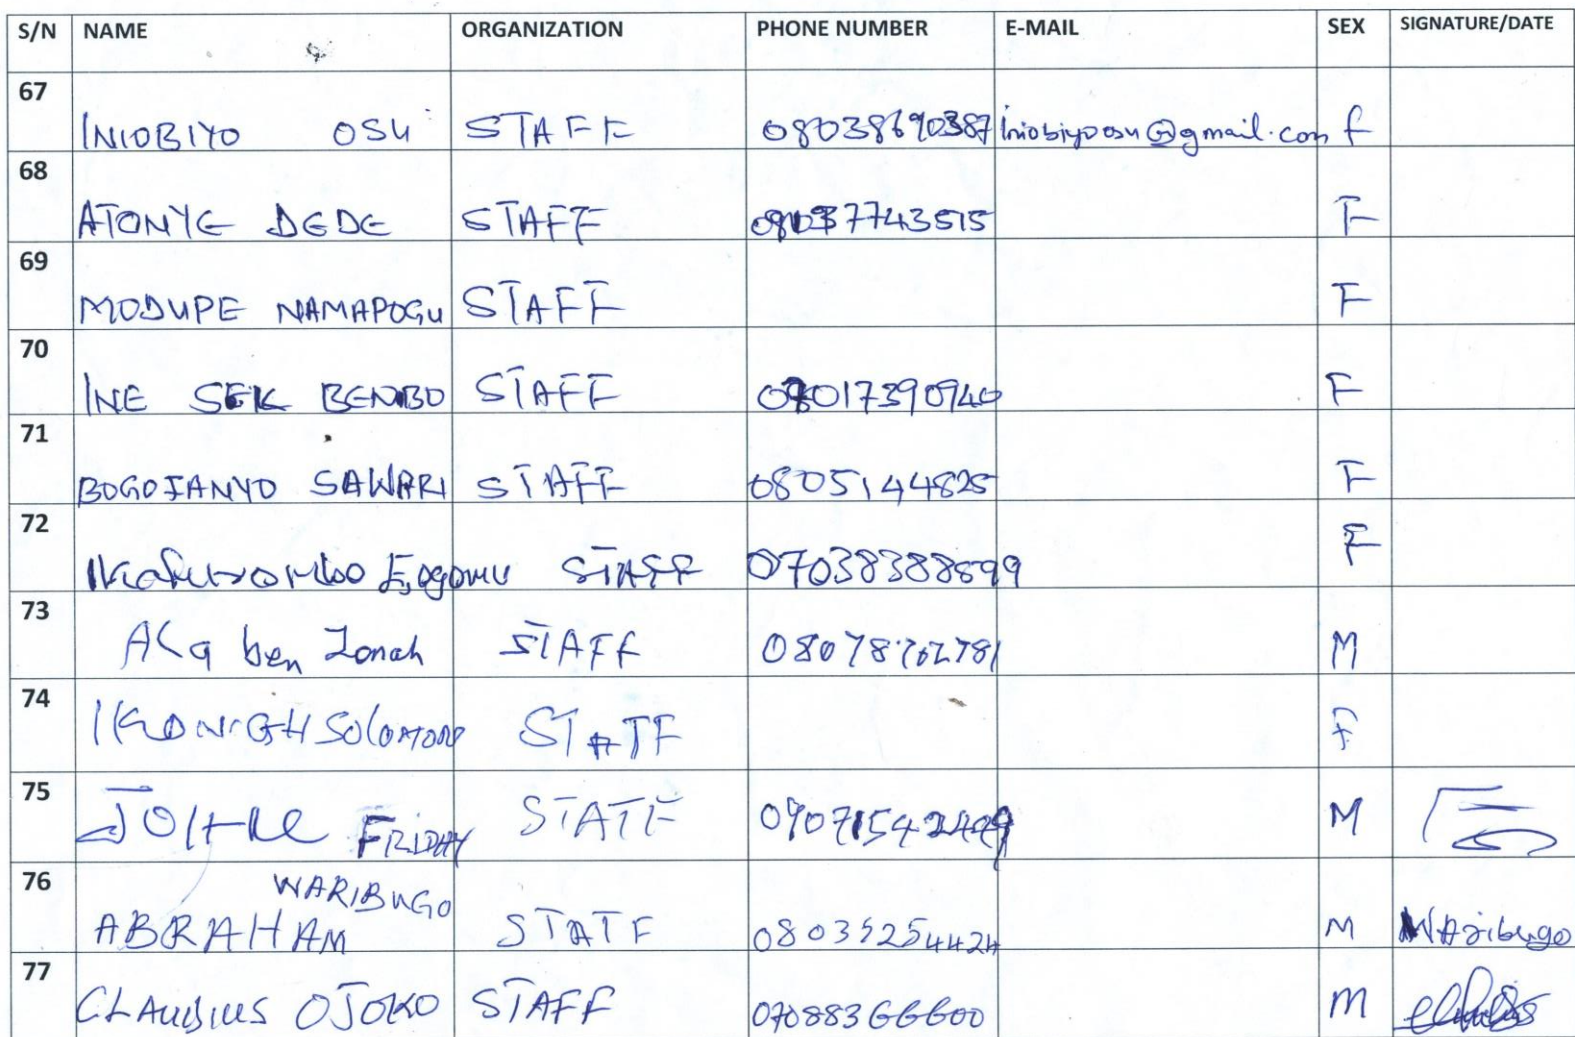 S/N NAME ORGANIZATION PHONE NUMBER E-MAIL SEX SIGNATURE/DATE
67 INIOBIYO OSU STAFF 08038690387 iniobiyoosu@gmail.com f
68 ATONYE DEDE STAFF 08037743515 F
69 MODUPE NAMAPOGU STAFF F
70 INE SEK BENIBO STAFF 07017390940 F
71 BOGOJANYO SAWARI STAFF 0805144825 F
72 STAFF 07038388899 F
73 ben Jonah STAFF M
74 SOLOMON STATF F
75 FRIDAY STATF 09071542449 M
76 WARIBUGO
ABRAHAM STATF 08035254424 M Waribugo
77 CLAUDIUS OJOKO STAFF 07088366600 M